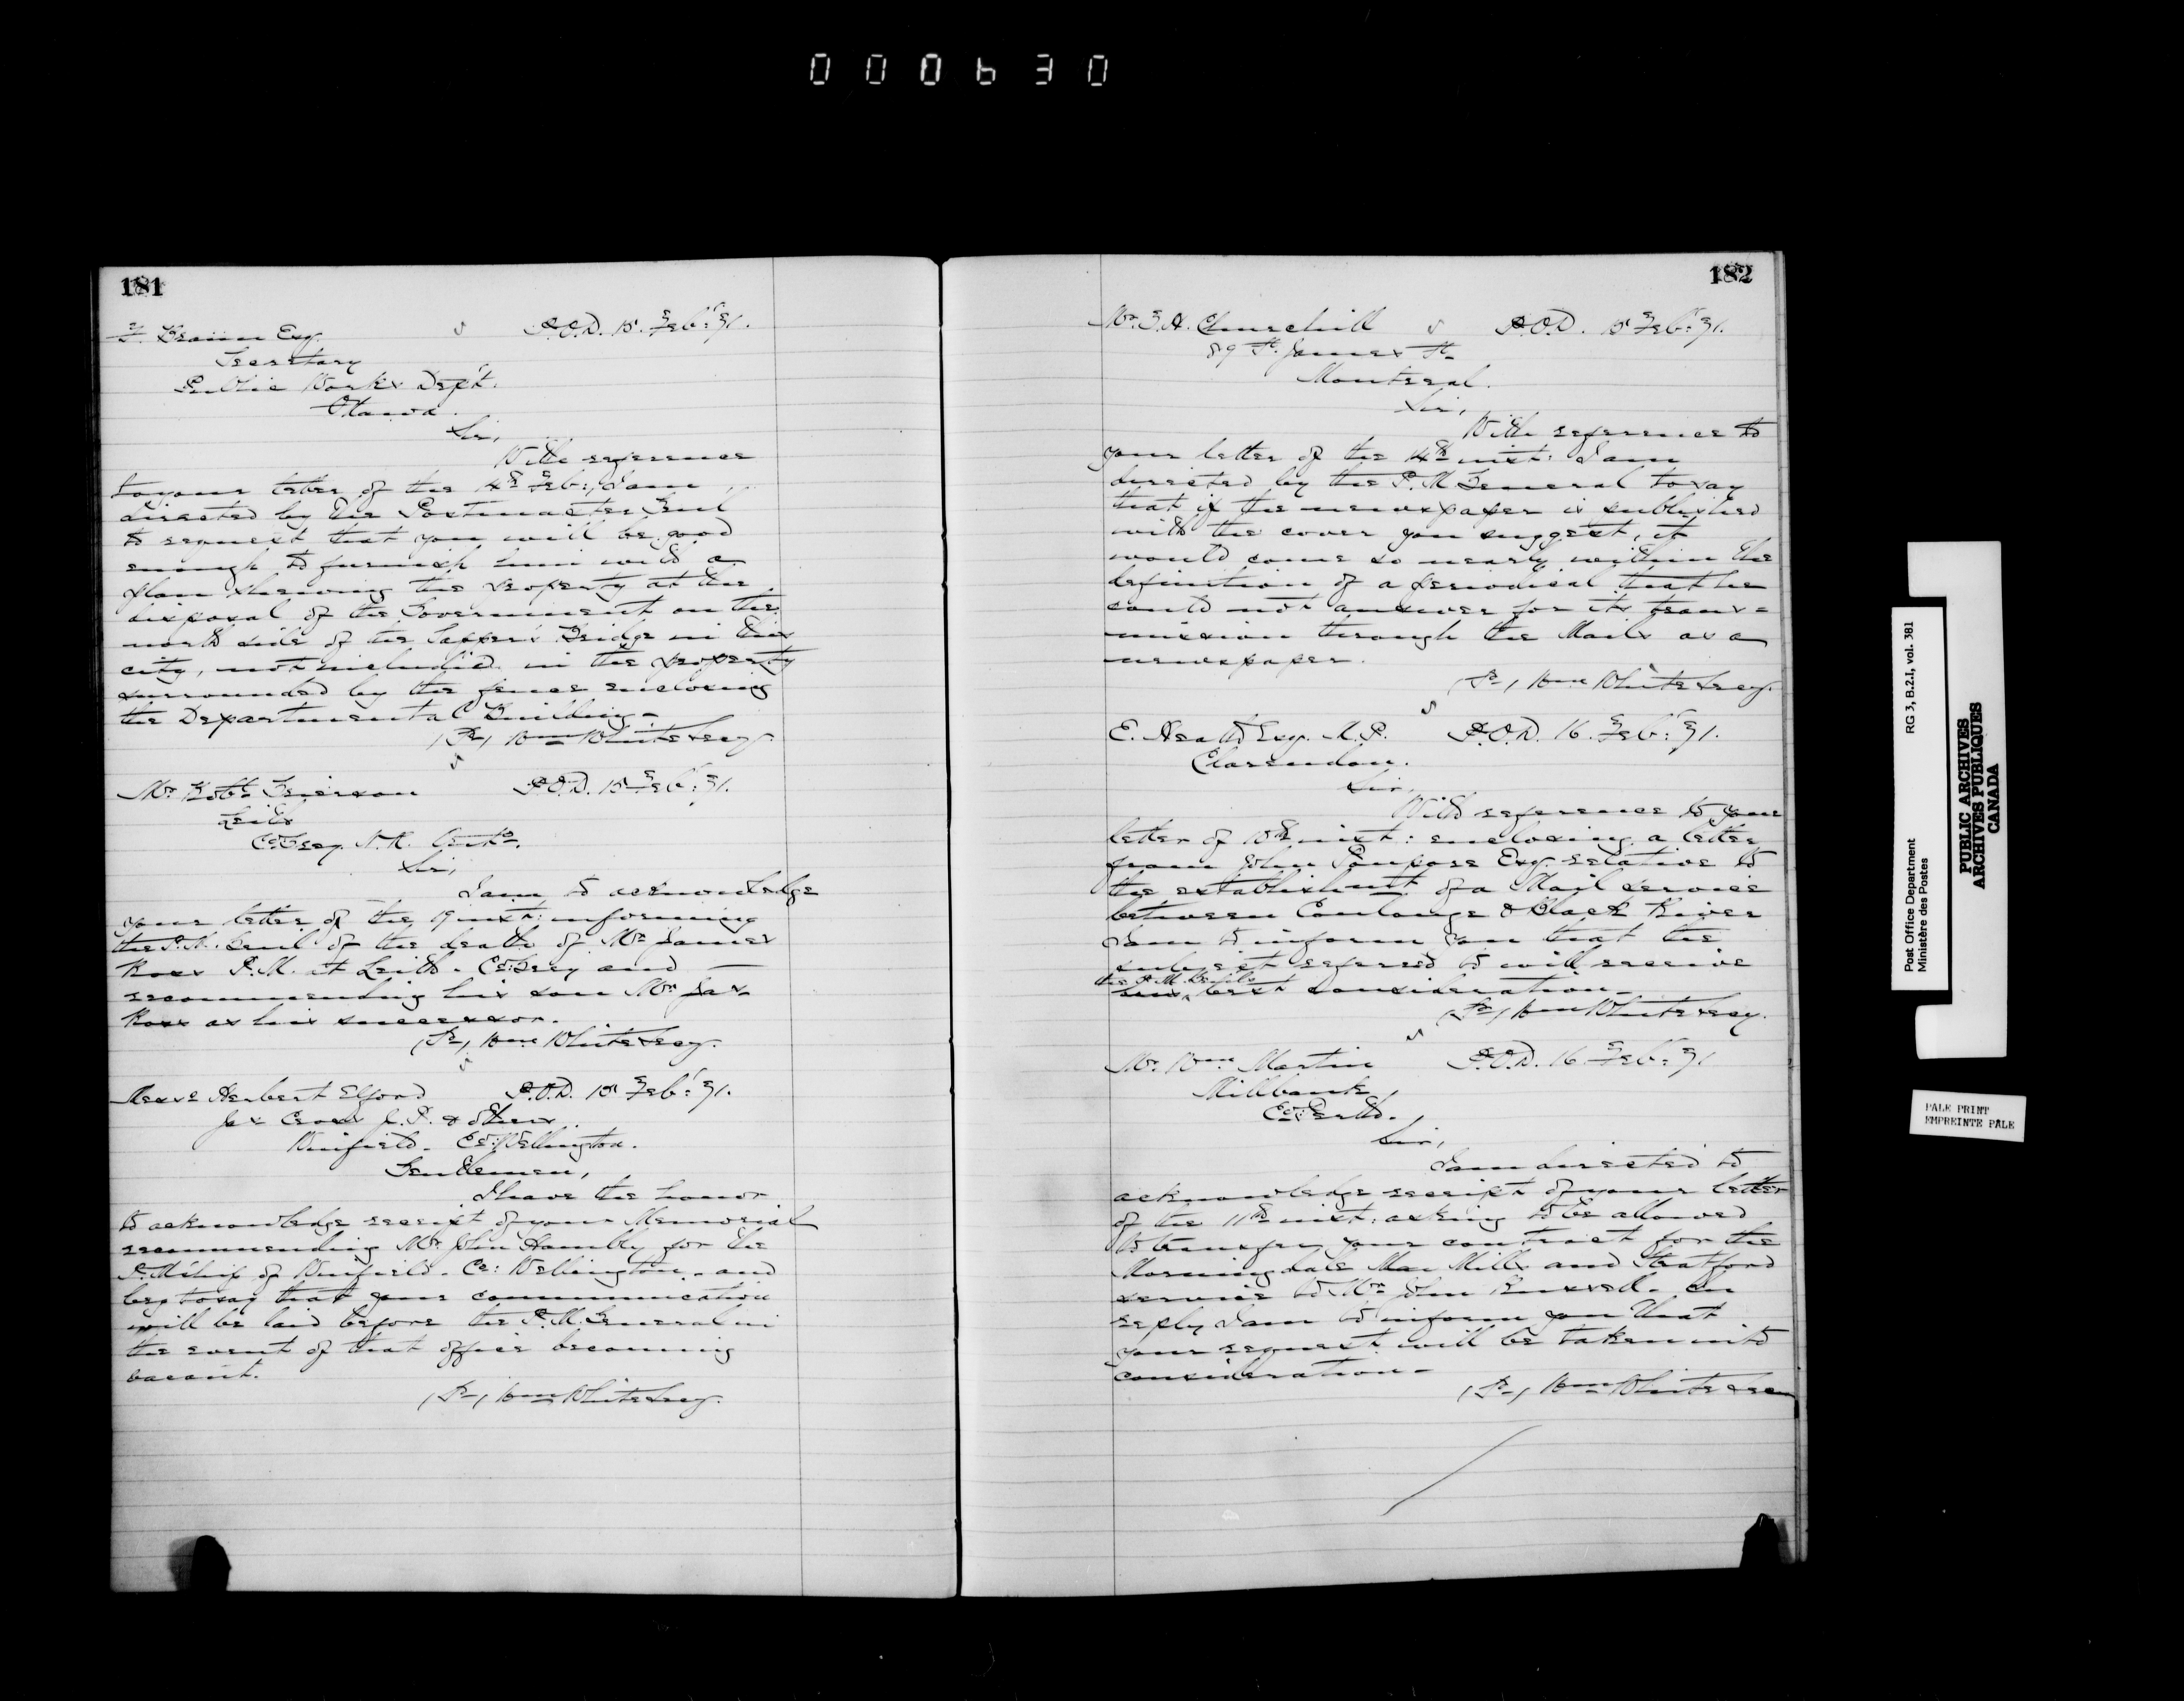 000630
181
F. Braun Esq. P.O.D. 15 Feb: '71.
Secretary
Public Works Dep't.
Ottawa.
Sir,
With reference
to your letter of the 14th Feb:, I am
directed by the Postmaster Genl
to request that you will be good
enough to furnish him with a
plan shewing the property at the
disposal of the Government on the
north side of the Sapper's Bridge in this
city, not included in the property
surrounded by the fence enclosing
the Departmental Building-
(Sd) Wm White Secy.
Mr. Robt. P.O.D. 15 Feb: '71.
Leith
Co: Grey. N.R. Ont.
Sir,
I am to acknowledge
your letter of the inst: informing
the P.M. Genl of the death of Mr James
Ross P.M. at Leith. Co: Grey and
recommending his son Mr. Jas.
Ross as his successor.
(Sd) Wm White Secy.
Messrs Herbert Elford P.O.D. 15 Feb: '71.
Jas Cross J.P. & others.
Winfield. Co: Wellington.
Gentlemen,
I have the honor
to acknowledge receipt of your Memorial
recommending Mr. John Hambly for the
P.M'ship of Winfield. Co: Wellington. and
beg to say that your communication
will be laid before the P.M. General in
the event of that office becoming
vacant.
(Sd) Wm White Secy.
182
Mr. Churchill P.O.D. 15 Feb: '71.
89 St. James St.
Montreal.
Sir,
With reference to
your letter of the 14th inst: I am
directed by the P.M. General to say
that if the newspaper is published
with the cover you suggest, it
would come so nearly within the
definition of a periodical that he
could not answer for its trans=
mission through the Mails as a
newspaper.
(Sd) Wm White Secy.
E. Heath Esq. M.P. P.O.D. 16. Feb: '71.
Clarendon.
Sir,
With reference to your
letter of 10th inst: enclosing a letter
from John Poupore Esq. relative to
the establishmt of a Mail service
between Coulonge & Black River
I am to inform you that the
subject referred to will receive
the P.M. Genl's
his best consideration-
(Sd) Wm White Secy.
Mr. Wm Martin P.O.D. 16. Feb: '71
Millbank,
Co: Perth.
Sir,
I am directed to
acknowledge receipt of your letter
of the 11th inst: asking to be allowed
to transfer your contract for the
Morningdale Mills and Stratford
service to Mr John. In
reply I am to inform you that
your request will be taken into
consideration-
(Sd) Wm White Secy
Post Office Department RG 3, B.2.I, vol. 381
Ministère des Postes
PUBLIC ARCHIVES
ARCHIVES PUBLIQUES
CANADA
PALE PRINT
EMPREINTE PALE